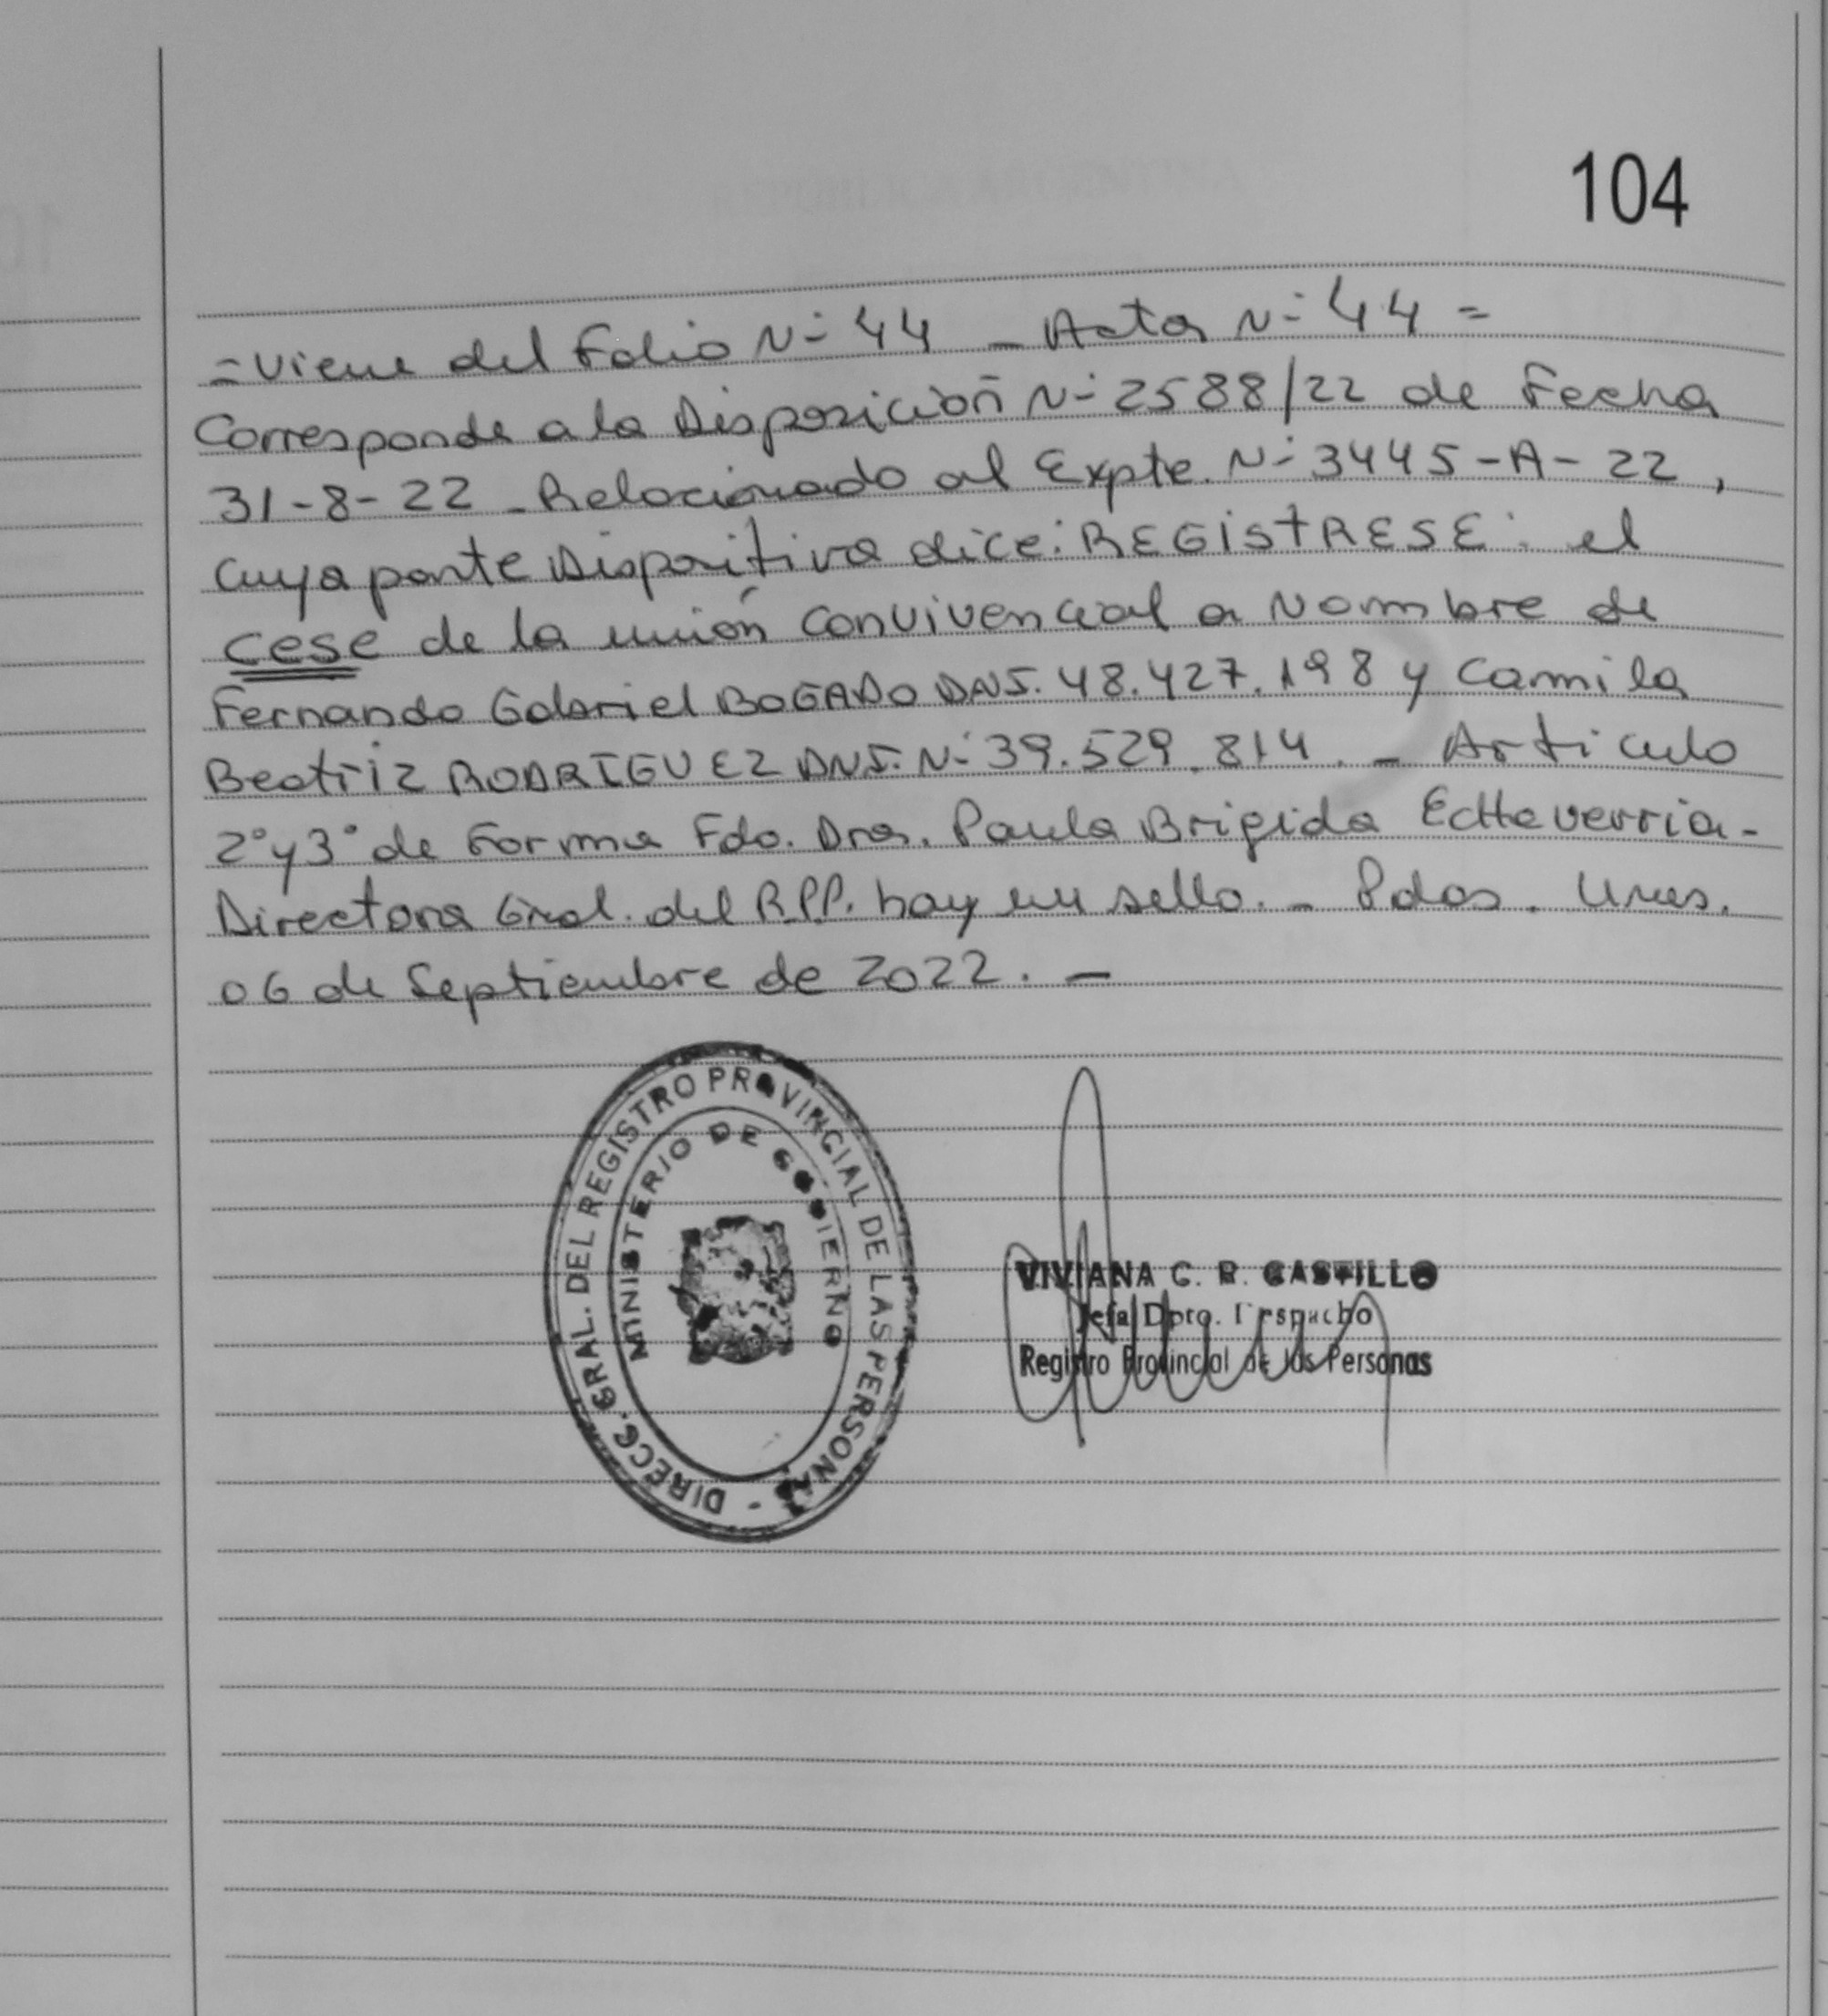 104
= Viene del Folio N- 44 - Acta N- 44 =
Corresponde a la Disposición N- 2588/22 de Fecha
31-8-22 - Relacionado al Expte. N- 3445-A-22,
Cuya parte Dispositiva dice: REGISTRESE: el
cese de la unión convivencial a Nombre de
Fernando Gabriel BOGADO DNI. 48.427.198 y Camila
Beatriz RODRIGUEZ DNI. N- 39.529.814. - Articulo
2° y 3° de Forma Fdo. Dra. Paula Brigida Echeverria -
Directora Gral. del R.P.P. hay un sello. - Pdas.
06 de Septiembre de 2022. -
DIRECC. GRAL. DEL REGISTRO PROVINCIAL DE LAS PERSONAS -
MINISTERIO DE GOBIERNO
VIVIANA C. R. CASTILLO
Jefa Dpto. Despacho
Registro Provincial de las Personas